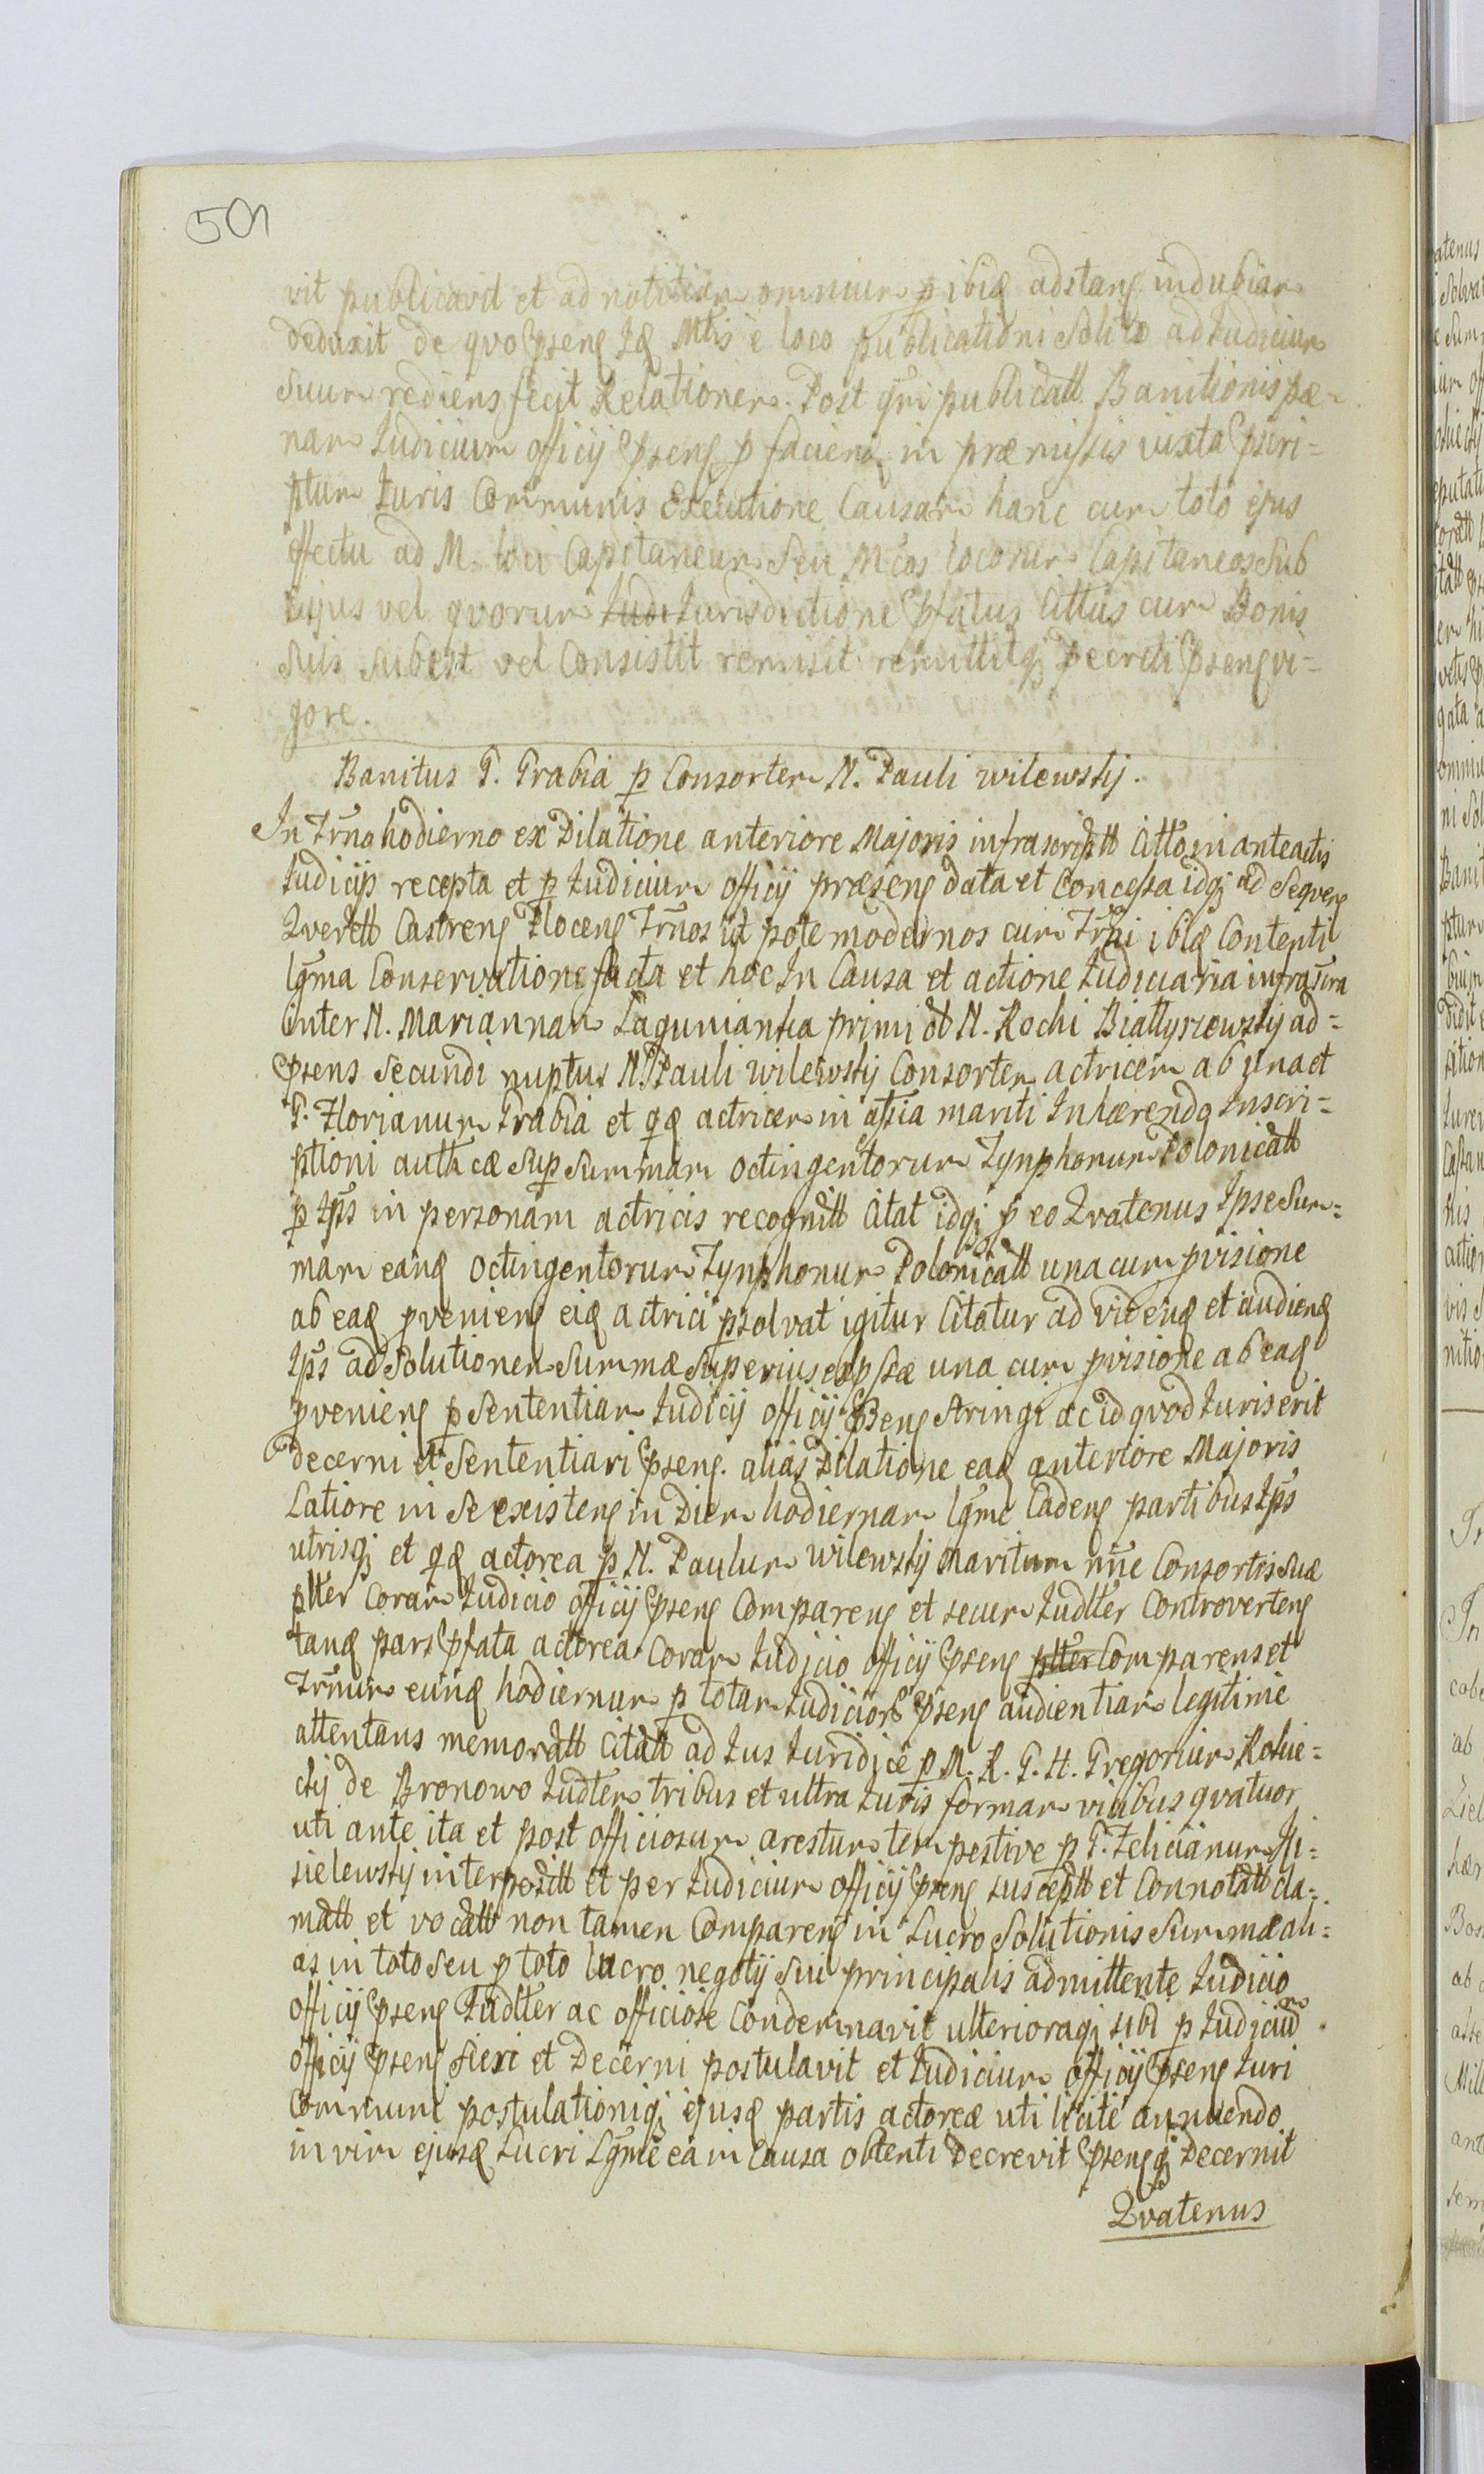 501
vit publicavit et ad notitiam omnium p̱ ibiq̃ adstanȩ indubiam
deduxit de qvo p̃senȩ Iq̃ Mtis e loco publicationi Solito ad Iudicium
Suum rediens fecit Relationem. Post qm̃ publicatt Banitionis pæ=
nam Iudicium officij p̃senȩ p facienq̃ in præmissis iuxta p̃scri=
ptum Iuris Communis Executione Causam hanc cum toto ejus
effectu ad M. loci Capitaneum seu Mcos locorum Capitaneos Sub
cujus vel qvorum Iudi Iurisdictione p̃fatus Cittus cum Bonis
Suis Subest vel Consistit remisit remittitq; Decreti p̃senȩ vi=
gore.
Banitus G. Grabia p̱ Consortem N. Pauli wilewskij.
In Trm̃o hodierno ex Dilatione anteriore Majoris infrascriptt Citto in anteactis
Iudicijs recepta et p̱ Iudicium officij præsenȩ data et Concessa idq; ad Seqvenȩ
Qverett Castrenȩ Plocenȩ Trm̃os ut pote modernos cum Trm̃i ibiq̃ Contenti
lgma Conservatione facta et hoc In Causa et actione Iudiciaria infrascra
inter N. Mariannam Łaguniankа primi olt N. Rochi Białłyszewskij ad=
p̃sens Secundi nuptus N. Pauli wilewskij Consortem actricem ab una et
G. Florianum Grabia et qq̃ actricem in assia mariti Inhærendo Inscri=
ptioni authcæ Sup̱ Summam octingentorum Tynphonum Polonicatt
p̱ Ips̃ in personam actricis recognitt Citat idq; p eo Qvatenus Ipse Sum=
mam eanq̃ octingentorum Tynphonum Polonicatt una cum p̱visione
ab eaq̃ p̱venienȩ eiq̃ actrici p̱solvat igitur Citatur ad videnq̃ et audienq̃
Ips̃ ad Solutionem Summæ Superius exp̱ssæ una cum p̱visione ab eaq̃
p̱venienȩ p̱ Sententiam Iudicij officij p̃senȩ Stringi ac id qvod Iuris erit
decerni et Sententiari p̃senȩ. alias Dilatione eaq̃ anteriore Majoris
Latiore in Se existenȩ in Diem hodiernam lgme Cadenȩ partibus Ips̃
utrisq; et qq̃ actorea p̱ N. Paulum wilewskij Maritum nm̃e Consortis Suæ
p̱lter Coram Iudicio officij p̃senȩ Comparenȩ et secum Iudlter Controvertenȩ
tanq̃ pars p̃fata actorea Coram Iudicio officij p̃senȩ p̱lter Comparens et
Trm̃um eunq̃ hodiernum p̱ totam Iudicior̃ p̃senȩ audientiam legitime
attentans memoratt Citatt ad Ius Iuridice p̱ M. R. G. H. Gregorium Kolue=
ckij de Bronowo Iudlter tribus et ultra Iuris formam vicibus qvatuor
uti ante ita et post officiosum arestum tempestive p̱ G. Felicianum Mi=
sielewskij interpositt et per Iudicium officij p̃senȩ susceptt et Connotatt cla=
matt et vocatt non tamen Comparenȩ in Lucro Solutionis Summæ ali=
as in toto seu p̱ toto lucro negotij sui principalis admittente Iudicio
officij p̃senȩ Iudlter ac officiose Condemnavit ulterioraq; sibi p̱ Iudicium
officij p̃senȩ fieri et Decerni postulavit et Iudicium officij p̃senȩ Iuri
Communi postulationiq; ejusq̃ partis actoreæ uti licite annuendo
in vim ejusq̃ Lucri Lgme ea in Causa obtenti Decrevit p̃senȩq; Decernit
Qvatenus